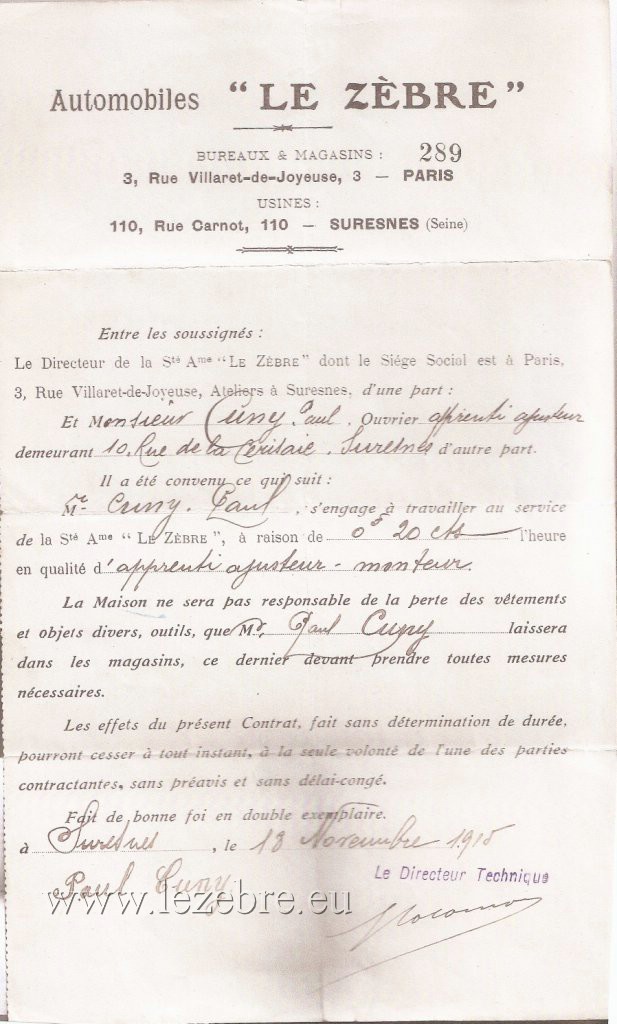 Automobiles "LE ZÈBRE"
BUREAUX & MAGASINS : 289
3, Rue Villaret-de-Joyeuse, 3 — PARIS
USINES :
110, Rue Carnot, 110 — SURESNES (Seine)
Entre les soussignés :
Le Directeur de la Sté Ame "LE ZÈBRE" dont le Siége Social est à Paris,
3, Rue Villaret-de-Joyeuse, Ateliers à Suresnes, d'une part :
Et Monsieur Cuny Paul, Ouvrier apprenti ajusteur
demeurant 10, Rue de la Cerisaie, Suresnes d'autre part.
Il a été convenu ce qui suit :
Mr Cuny. Paul, s'engage à travailler au service
de la Sté Ame "LE ZÈBRE", à raison de 0f 20 cts l'heure
en qualité d'apprenti ajusteur - monteur.
La Maison ne sera pas responsable de la perte des vêtements
et objets divers, outils, que Mr. Paul Cuny laissera
dans les magasins, ce dernier devant prendre toutes mesures
nécessaires.
Les effets du présent Contrat, fait sans détermination de durée,
pourront cesser à tout instant, à la seule volonté de l'une des parties
contractantes, sans préavis et sans délai-congé.
Fait de bonne foi en double exemplaire.
à Suresnes, le 18 Novembre 1915
Le Directeur Technique
Paul Cuny
www.lezebre.eu